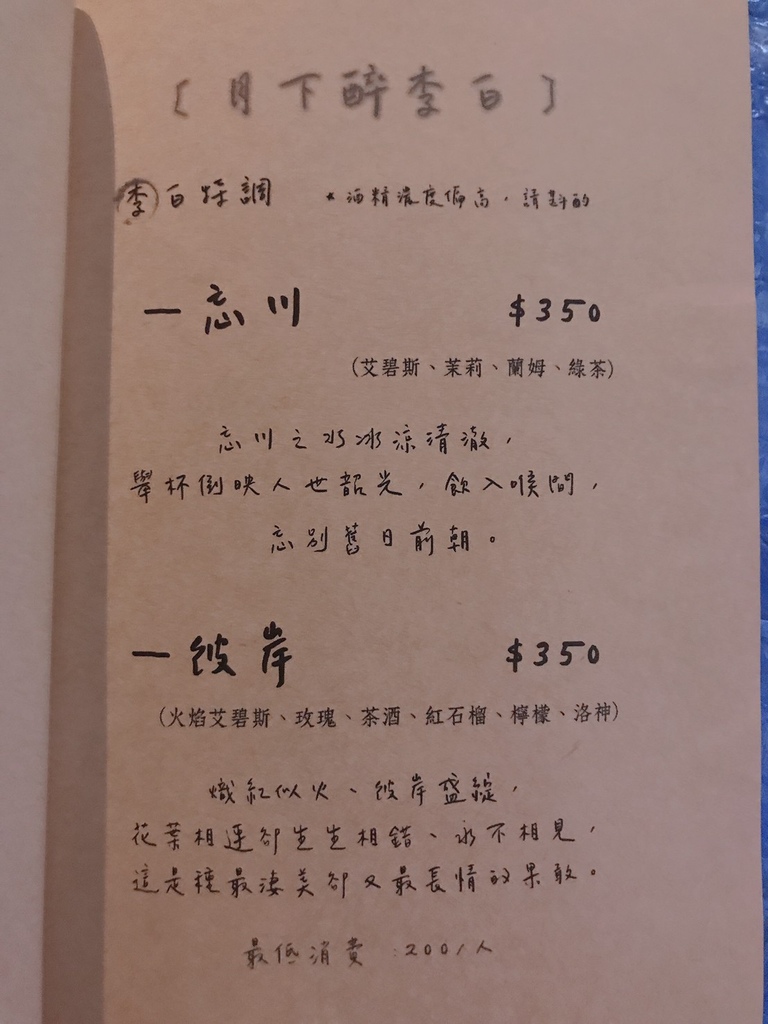 [月下醉李白]
李白特調 *酒精濃度偏高，請斟酌
一忘川 $350
(艾碧斯、茉莉、蘭姆、綠茶)
忘川之水冰涼清澈，
舉杯倒映人世韶光，飲入喉間，
忘別舊日前朝。
一彼岸 $350
(火焰艾碧斯、玫瑰、茶酒、紅石榴、檸檬、洛神)
熾紅似火、彼岸盛綻，
花葉相連卻生生相錯、永不相見，
這是種最淒美卻又最長情的果敢。
最低消費：200/人